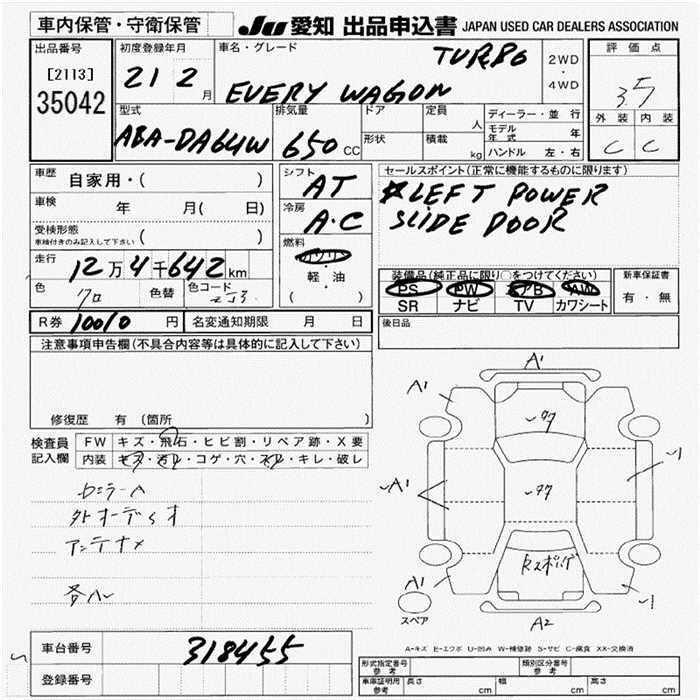 車内保管・守衛保管
JU 愛知 出品申込書 JAPAN USED CAR DEALERS ASSOCIATION
出品番号
[2113]
35042
初度登録年月
21 2 月
車名・グレード
TURBO
EVERY WAGON
2WD
・
4WD
評価点
3.5
外装 内装
C C
型式
ABA-DA64W
排気量
650 CC
ドア
形状
定員
人
積載
kg
ディーラー・並行
モデル年式 年
ハンドル 左・右
車歴
自家用・( )
車検 年 月( 日)
受検形態
車検付きのみ記入して下さい ( )
走行
12万4千642km
色
クロ
色替
色コード
ZJ3
シフト
AT
冷房
A・C
燃料
ガソリン
軽・油
( )
セールスポイント(正常に機能するものに限ります)
LEFT POWER
SLIDE DOOR
装備品(純正品に限り〇をつけてください)
PS PW AB AW
SR ナビ TV カワシート
新車保証書
有・無
R券 10010 円
名変通知期限 月 日
後日品
注意事項申告欄(不具合内容等は具体的に記入して下さい)
修復歴 有 (箇所 )
検査員
記入欄
FW キズ・飛石・ヒビ割・リペア跡・X要
内装 キズ・汚レ・コゲ・穴・スレ・キレ・破レ
外オーディオ
アンテナメ
A1
A1
A1
A1
A2
スペア
A-キズ E-エクボ U-凹み W-補修跡 S-サビ C-腐食 XX-交換済
車台番号
318455
登録番号
形式指定番号
参考
類別区分番号
参考
車庫証明用
参考
長さ cm
幅 cm
高さ cm